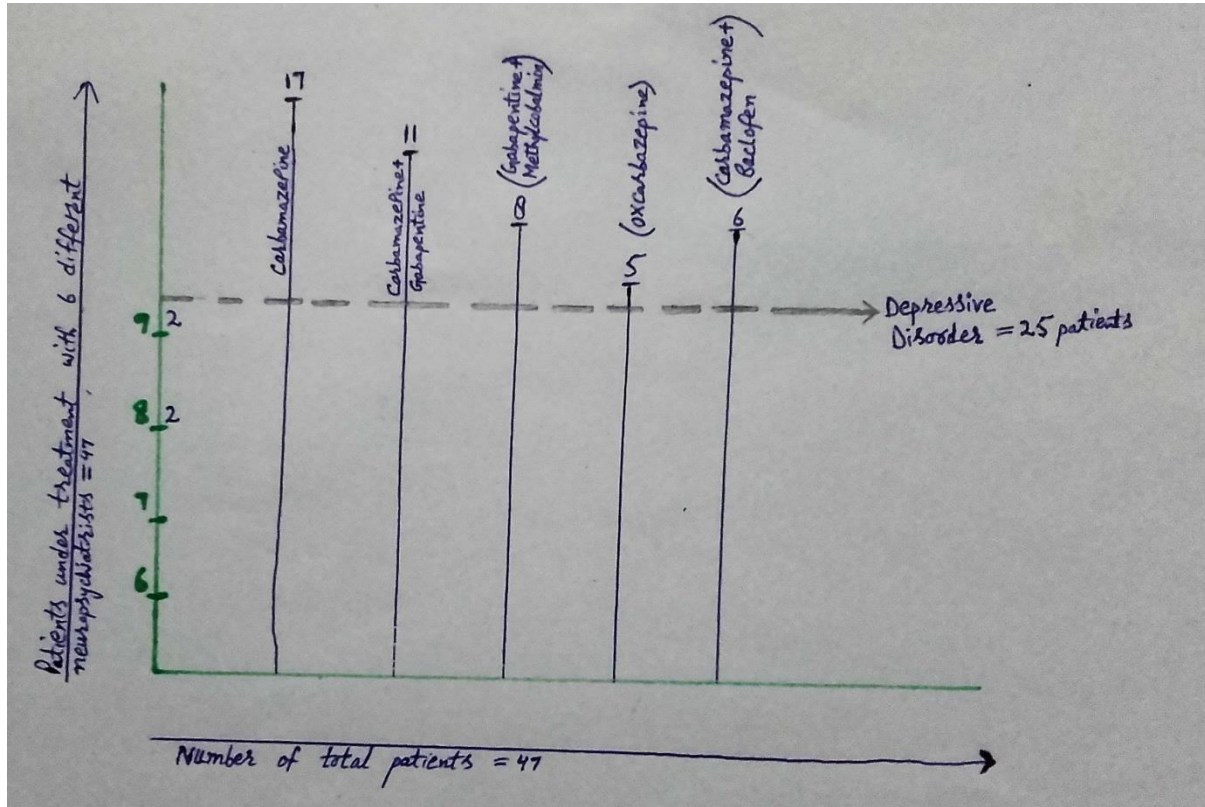 Patients under treatment with 6 different
neuropsychiatrists = 47
17
Carbamazepine
11
Carbamazepine+
Gabapentine
8 (Gabapentine+
Methylcobalmin)
5 (oxcarbazepine)
6 (Carbamazepine+
Baclofen)
9 2
8 2
7
6
Depressive
Disorder = 25 patients
Number of total patients = 47